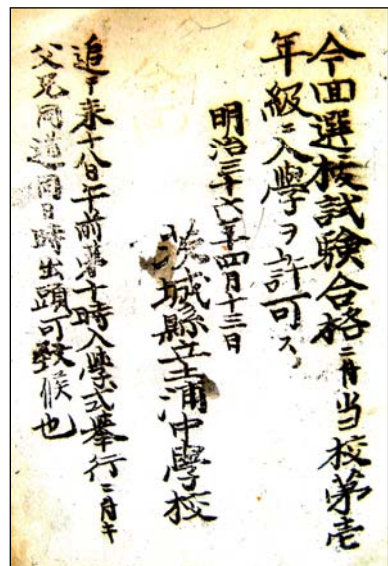 今回選抜試験合格ニ付当校第壱
年級ニ入學ヲ許可ス
明治三十六年四月十三日
茨城縣立土浦中學校
追テ来十八日午前第十時入學式擧行ニ付キ
父兄同道同日時出頭可致候也